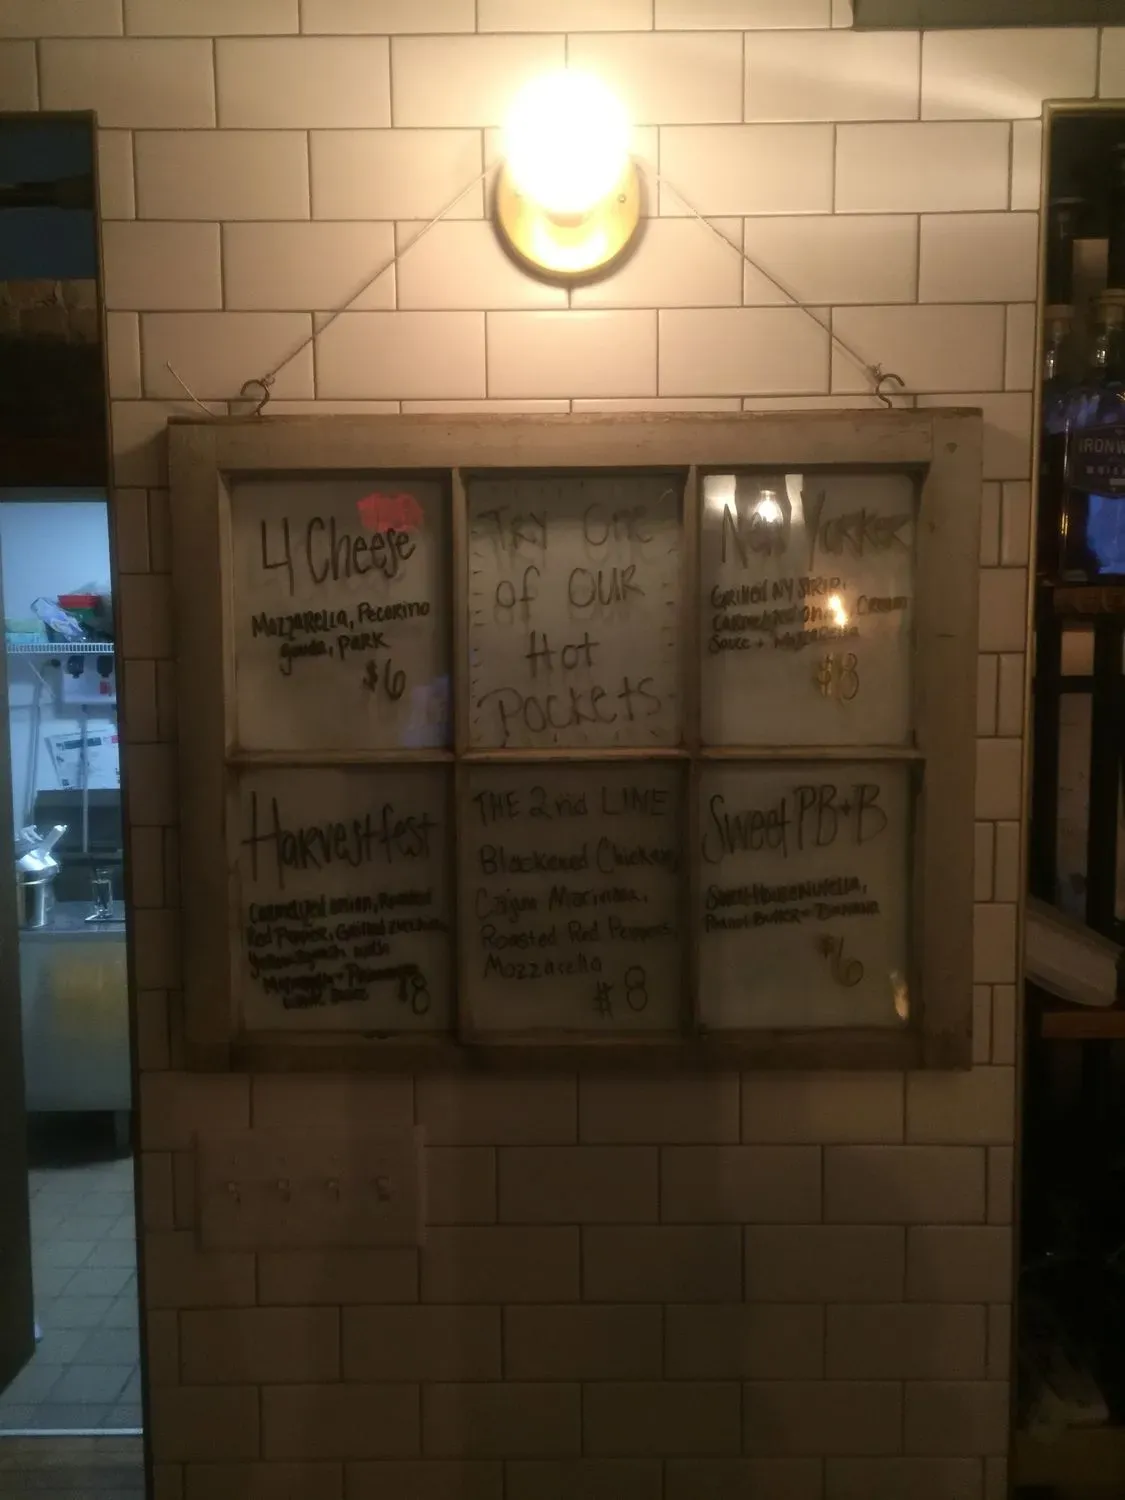 4 Cheese
Mozzarella, Pecorino
gouda, PARK
$6
TRY One
of OUR
Hot
Pockets
New Yorker
Grilled NY STRIP,
Cream
Sauce + Mozzarella
Harvestfest
Caramelized onion, Roasted
Red Pepper, Grilled zucchini,
with
$8
THE 2nd LINE
Blackened Chicken,
Cajun Marinara,
Roasted Red Peppers,
Mozzarella
$8
Sweet PB+B
Nutella,
Peanut Butter + Banana
$6
IRONW
WHIS